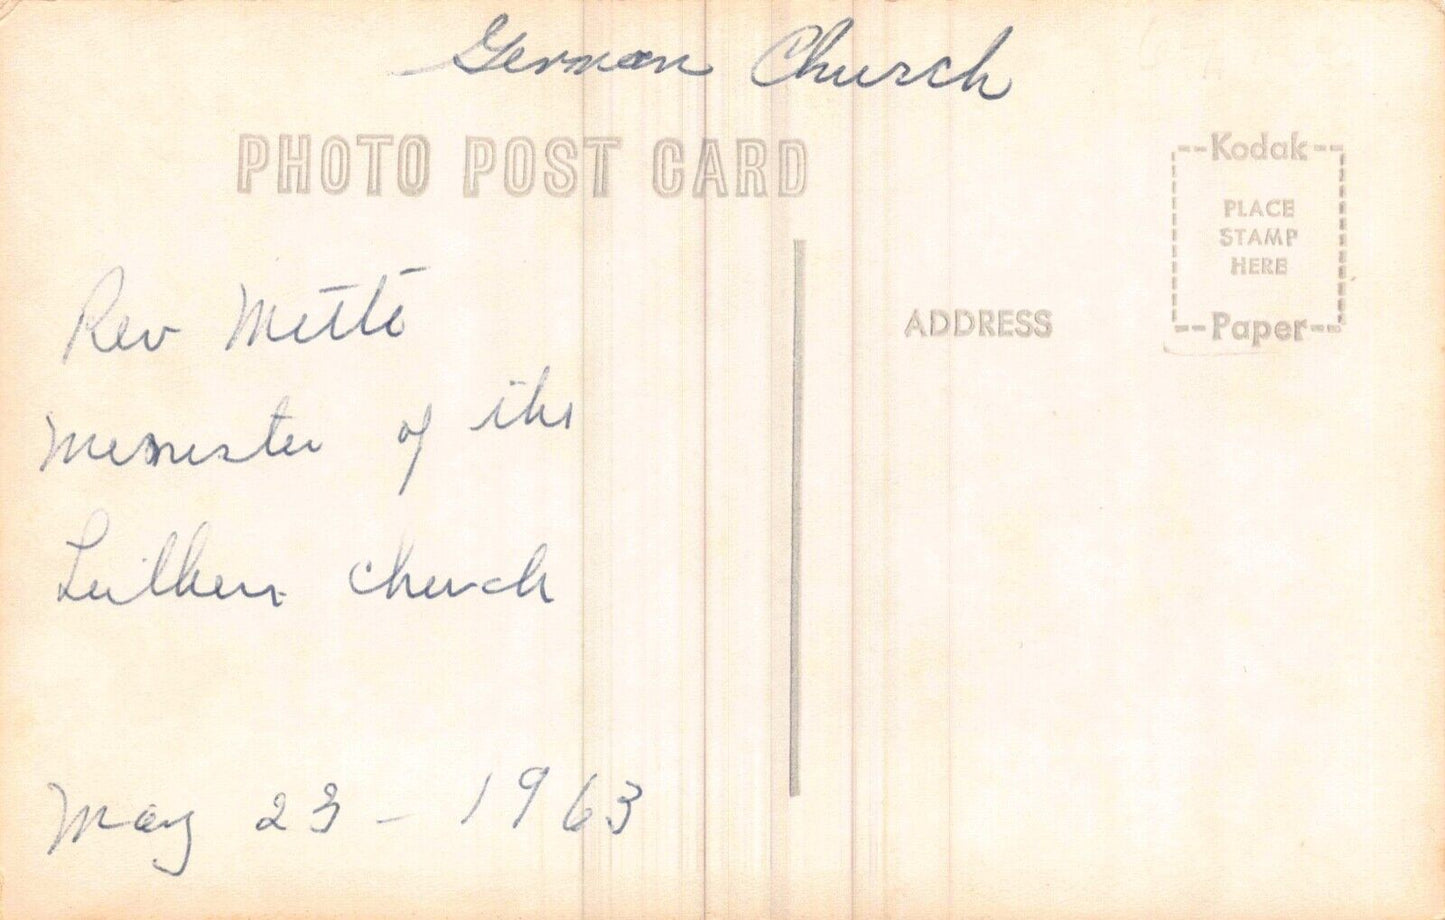 German Church
PHOTO POST CARD
Kodak
PLACE
STAMP
HERE
Paper
ADDRESS
Rev Mette
Menester of the
Luthern Church
May 23 - 1963